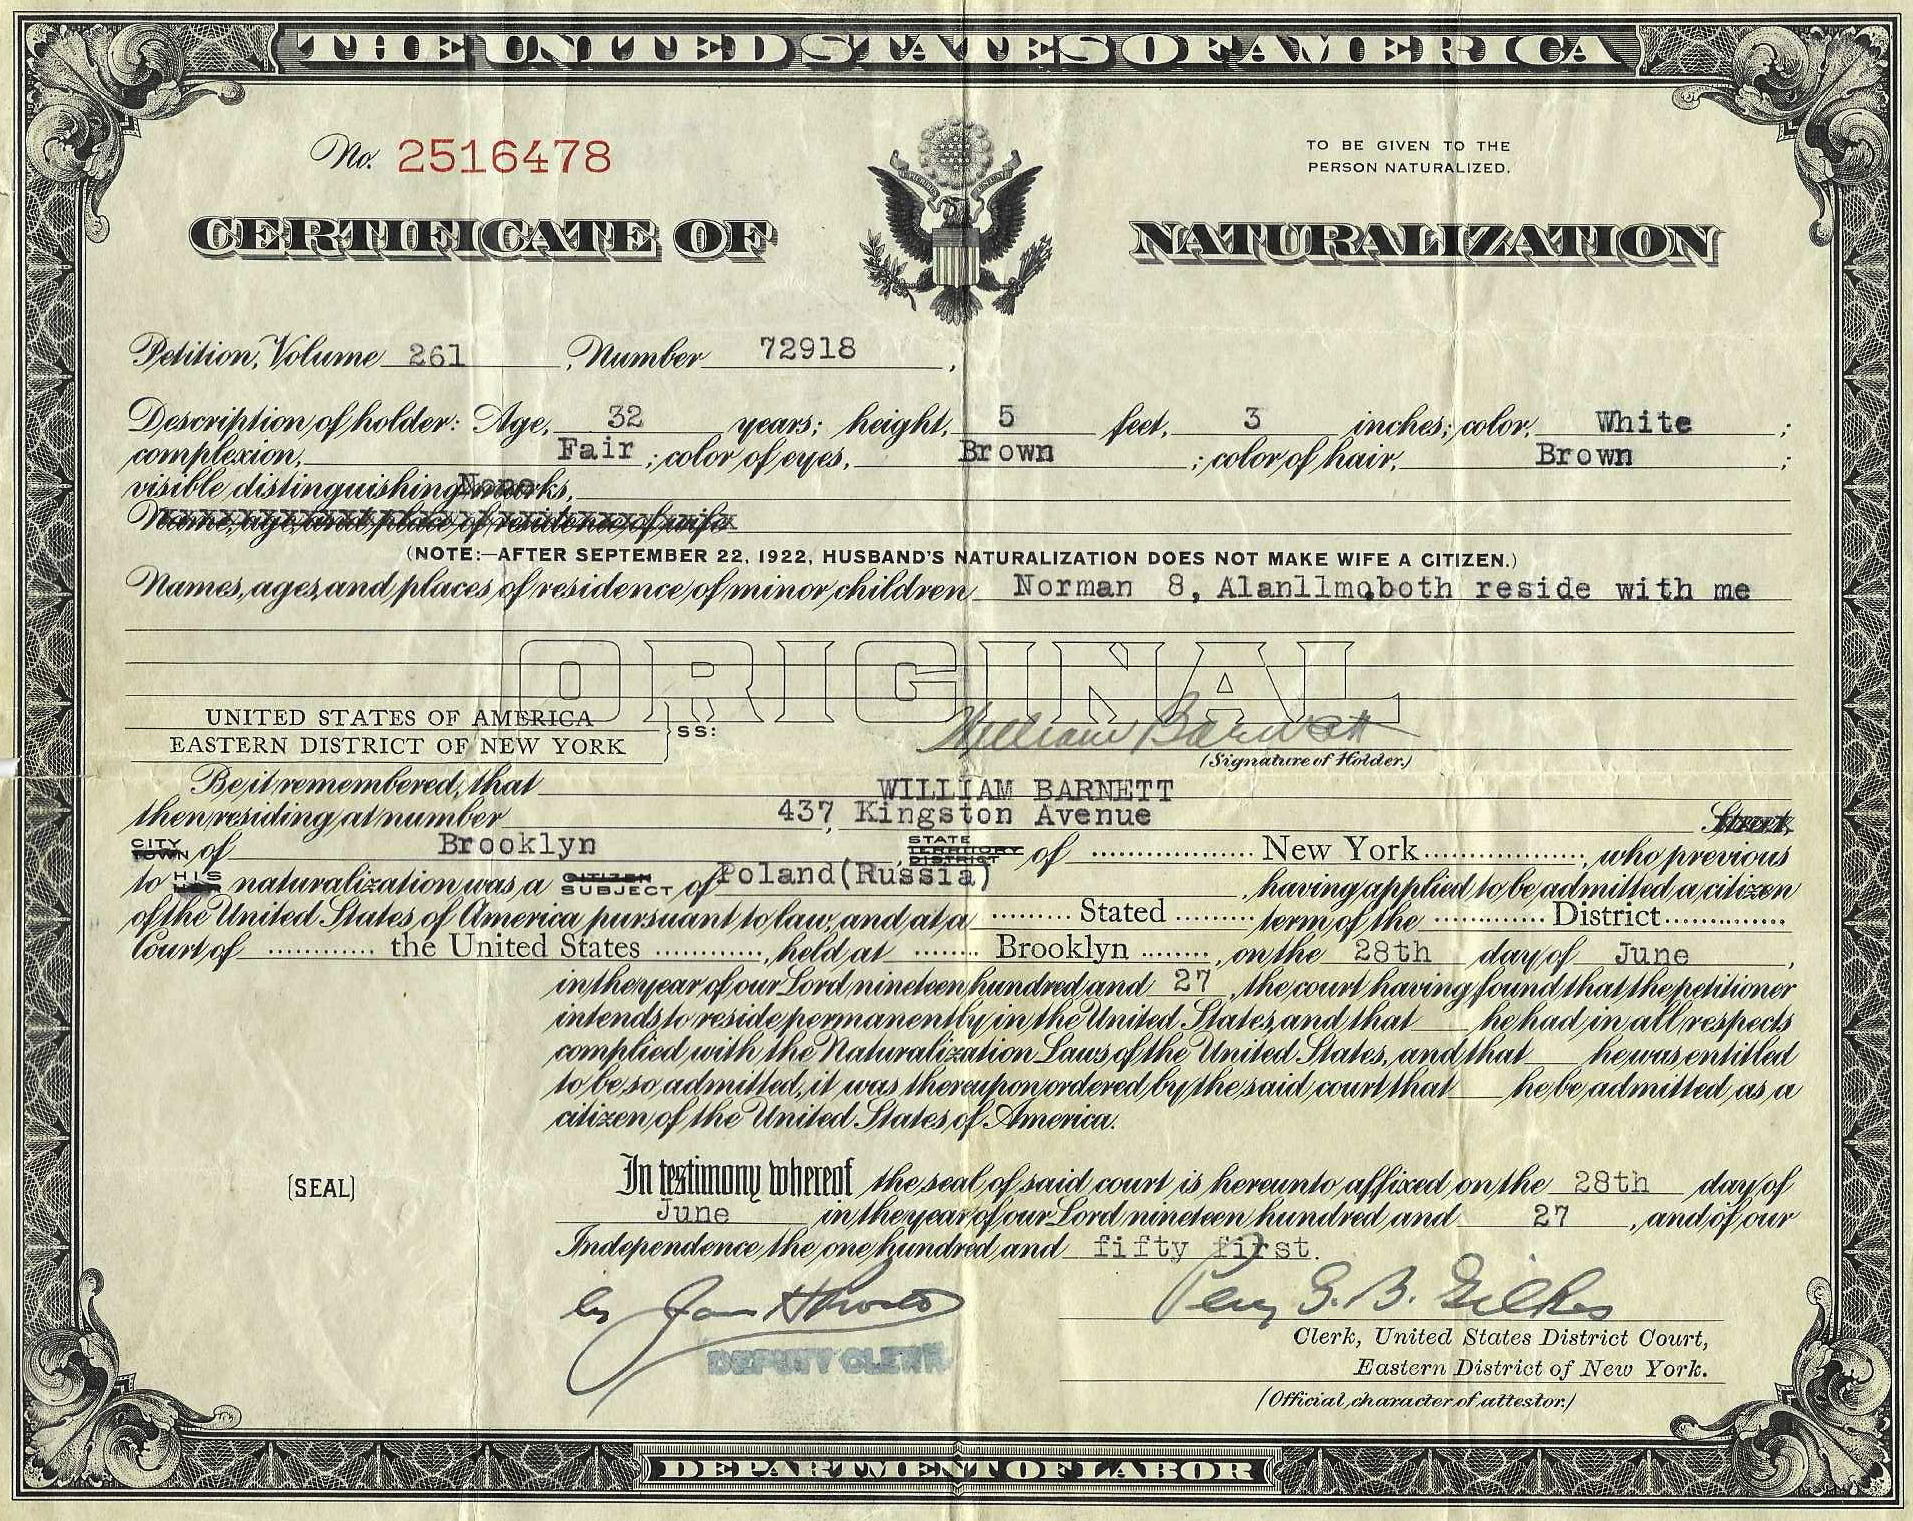 THE UNITED STATES OF AMERICA
No. 2516478
TO BE GIVEN TO THE
PERSON NATURALIZED.
CERTIFICATE OF NATURALIZATION
Petition, Volume 261, Number 72918,
Description of holder: Age, 32 years; height, 5 feet, 3 inches; color, White;
complexion, Fair; color of eyes, Brown; color of hair, Brown;
visible distinguishing marks, None
Name, age, and place of residence of wife
(NOTE:—AFTER SEPTEMBER 22, 1922, HUSBAND'S NATURALIZATION DOES NOT MAKE WIFE A CITIZEN.)
Names, ages, and places of residence of minor children Norman 8, Alan11mo,both reside with me
ORIGINAL
UNITED STATES OF AMERICA
EASTERN DISTRICT OF NEW YORK } SS:
William Barnett
(Signature of Holder.)
Be it remembered, that WILLIAM BARNETT
then residing at number 437, Kingston Avenue Street,
CITY TOWN of Brooklyn, STATE TERRITORY DISTRICT of New York, who previous
to HIS HER naturalization was a CITIZEN SUBJECT of Poland(Russia), having applied to be admitted a citizen
of the United States of America pursuant to law, and at a Stated term of the District
Court of the United States, held at Brooklyn, on the 28th day of June,
in the year of our Lord nineteen hundred and 27, the court having found that the petitioner
intends to reside permanently in the United States, and that he had in all respects
complied with the Naturalization Laws of the United States, and that he was entitled
to be so admitted, it was thereupon ordered by the said court that he be admitted as a
citizen of the United States of America.
(SEAL)
In testimony whereof the seal of said court is hereunto affixed on the 28th day of
June in the year of our Lord nineteen hundred and 27, and of our
Independence the one hundred and fifty first.
by
DEPUTY CLERK
Percy G. B. Gilkes
Clerk, United States District Court,
Eastern District of New York.
(Official character of attestor.)
DEPARTMENT OF LABOR